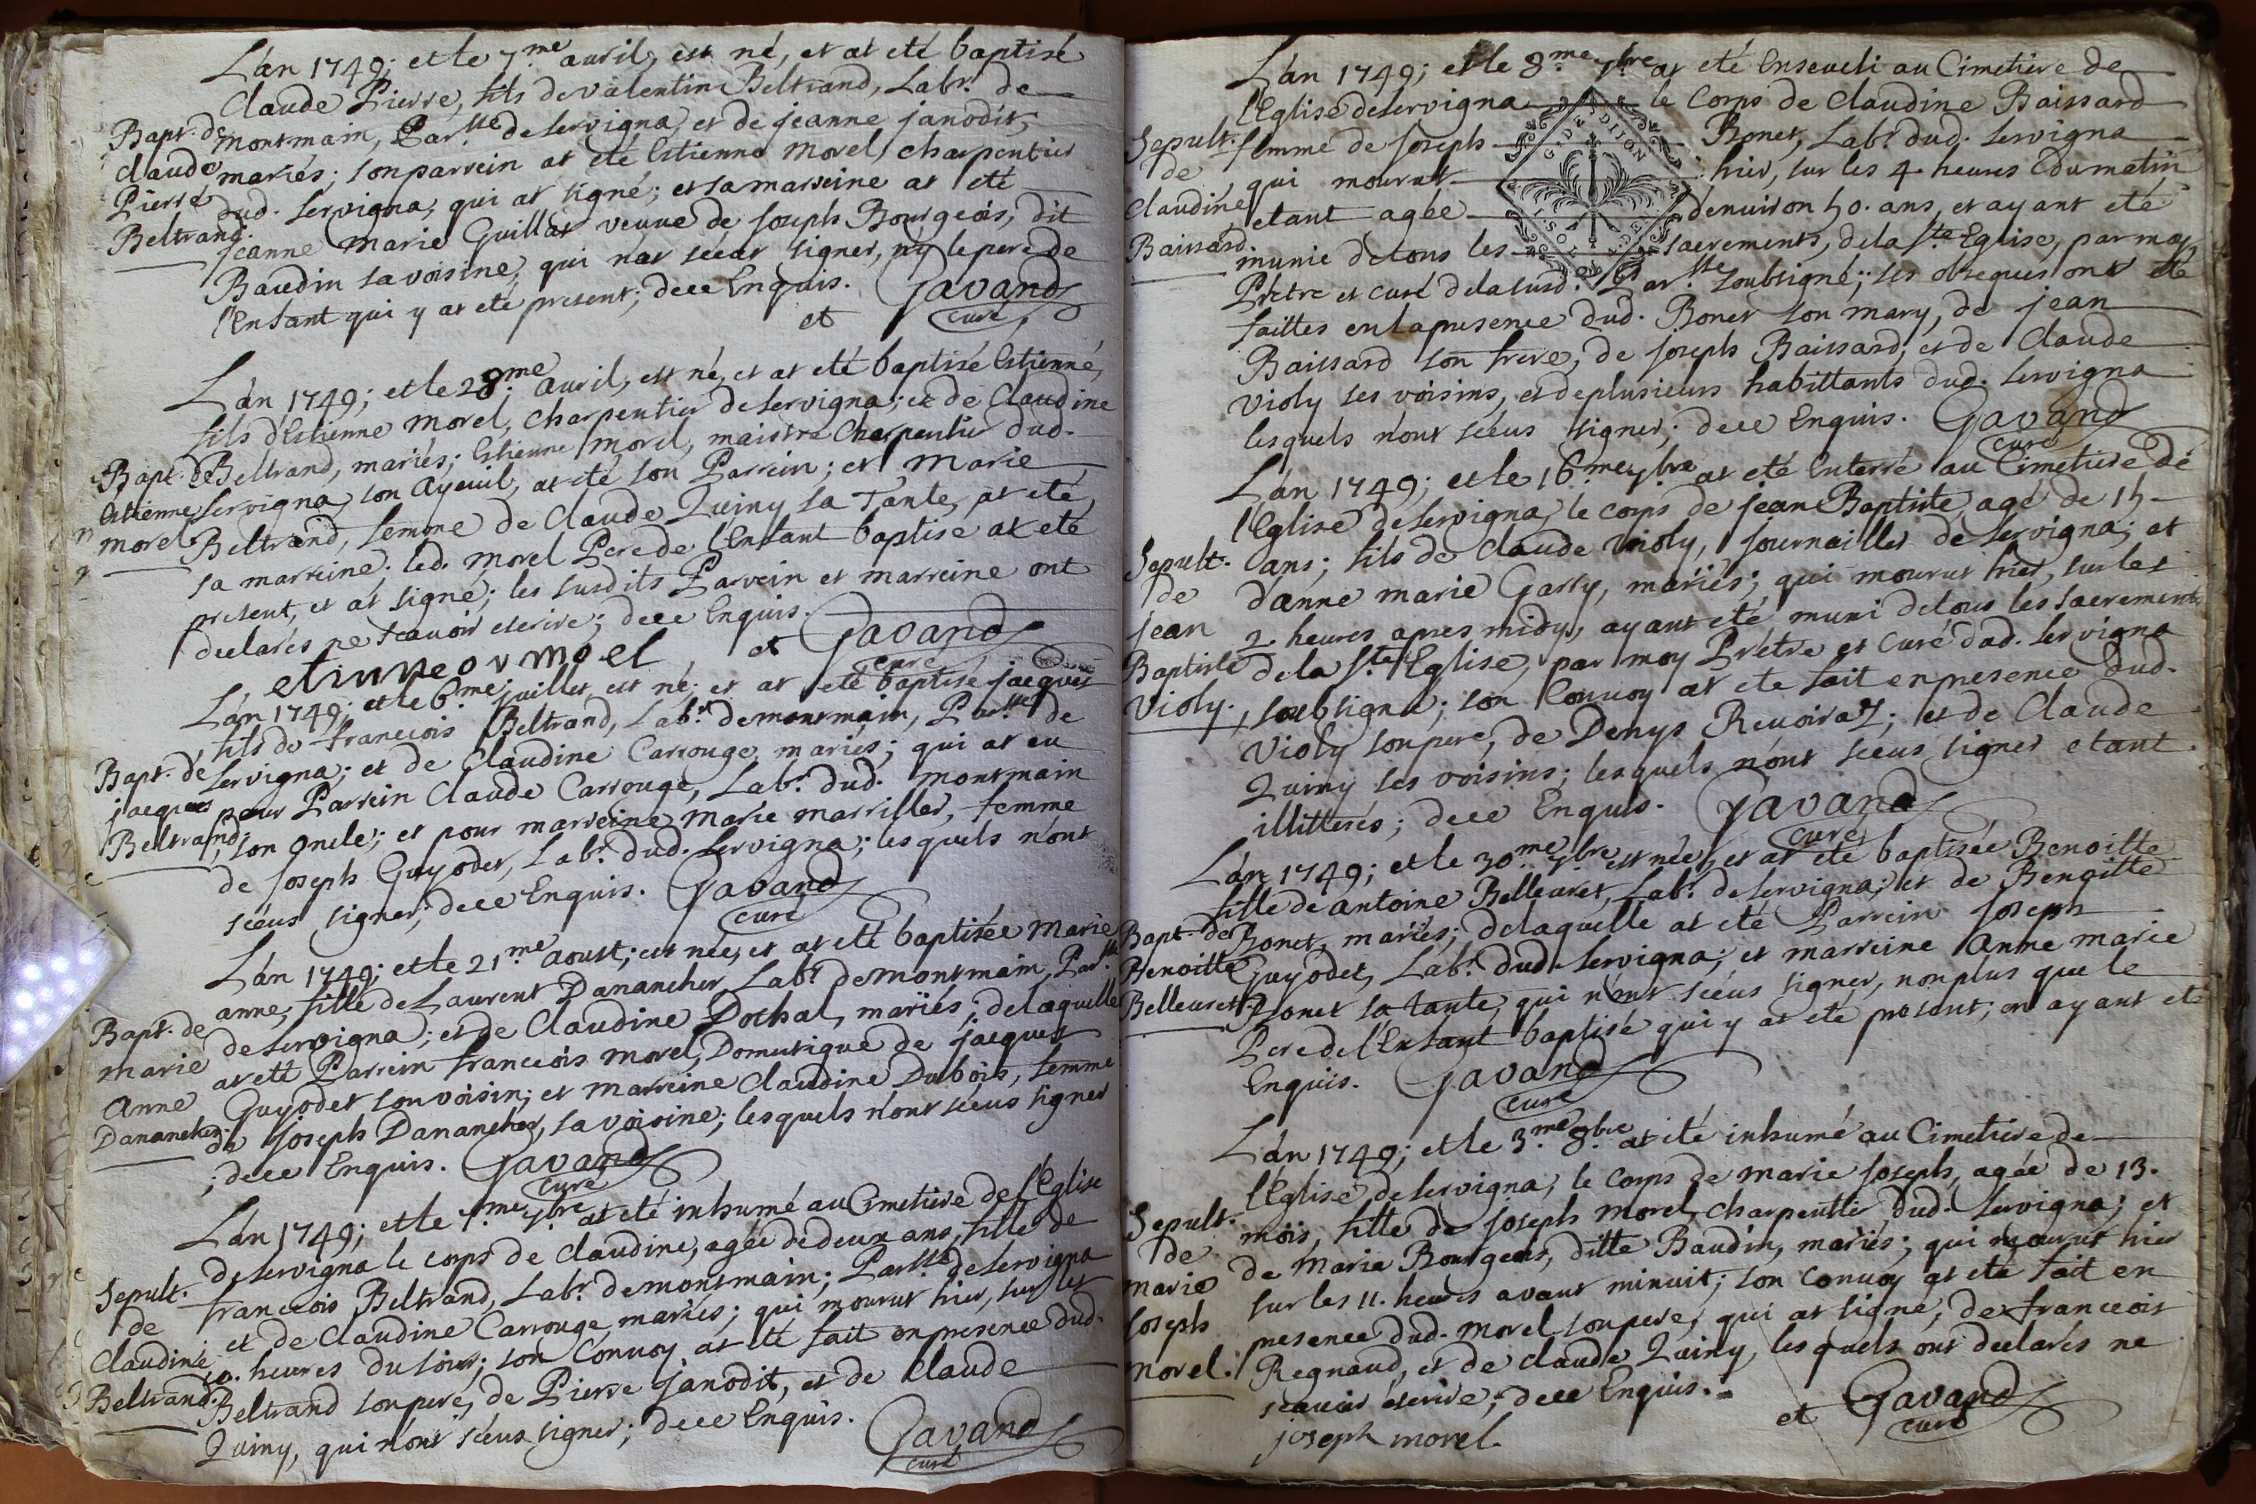 L'an 1749; et le 7.me avril, est né, et at eté baptisé
Claude Pierre, fils de valentin Beltrand, Labr. de
montmain, Par.sse de servigna, et de jeanne janodit,
mariés; son parrein at eté Estienne morel, charpentier
dud. servigna, qui at signé; et sa marreine at eté
jeanne marie Guillat veuve de Joseph Bourgeois, dit
Baudin sa voisine, qui n'at sceut signer, n'y le pere de
l'Enfant qui y at eté present; de ce Enquis. Gavand
et curé
Bapt. de
claude
Pierre
Beltrand.
L'an 1749; et le 28.me avril, est né, et at eté baptisé Estienne,
fils d'Estienne morel, charpentier de servigna; et de Claudine
Beltrand, mariés; Estienne morel, maistre charpentier dud.
servigna, son ayeuil, at eté son Parrein; et marie
Beltrand, femme de Claude Quiny sa Tante, at eté
sa marreine. led. morel Pere de l'Enfant baptisé at eté
present, et at signé; les susdits Parrein et marreine ont
declarés ne scavoir escrire; de ce Enquis.
etinneovmoel et Gavand
curé
Bapt. de
Estienne
morel
L'an 1749; et le 6.me juillet, est né, et at eté baptisé jacques
, fils de francois Beltrand, Labr. de montmain, Par.sse de
servigna; et de Claudine Carrouge, mariés; qui at eu
pour Parrein Claude Carrouge, Labr. dud. montmain
, son oncle; et pour marreine marie marriller, femme
de Joseph Guyodet, Labr. dud. servigna; lesquels n'ont
sceus signer; de ce Enquis. Gavand
curé
Bapt. de
jacques
Beltrand
L'an 1749; et le 21.me aoust; est née, et at eté baptisée marie
anne, fille de Laurent Danancher, Labr. de montmain, Par.sse
de servigna; et de Claudine Dochal, mariés; de laquelle
at eté Parrein francois morel, Domestique de jacques
Guyodet son voisin; et marreine Claudine Dubois, femme
de Joseph Danancher, sa voisine; lesquels n'ont sceus signer
; de ce Enquis. Gavand
curé
Bapt. de
marie
Anne
Danancher.
L'an 1749; et le 7.bre at eté inhumé au Cimetiere de l'Eglise
de servigna le corps de claudine, agée de deux ans, fille de
francois Beltrand, Labr. de montmain; Par.sse de servigna
et de Claudine Carrouge, mariés; qui mourut hier, sur les
10. heures du soir; son Convoy at eté fait en presence dud.
Beltrand son pere, de Pierre janodit, et de Claude
Quiny, qui n'ont sceus signer; de ce Enquis.
Gavand
curé
Sepult.
de
Claudine
Beltrand.
L'an 1749; et le 8.me 7.bre at eté Enseveli au Cimetiere de
l'Eglise de servigna le Corps de Claudine Baissard
femme de Joseph Bonet, Labr. dud. servigna
qui mourut hier, sur les 4. heures du matin
etant agée d'environ 50. ans, et ayant eté
munie de tous les sacrements, de la Ste Eglise, par moy
Prêtre et curé de la susd. Par.sse soubsigné; ses obseques ont eté
faittes en la presence dud. Bonet son mary, de jean
Baissard son frere, de Joseph Baissard, et de Claude
violy ses voisins, et de plusieurs habittants dud. servigna
lesquels n'ont sceus signer; de ce Enquis. Gavand
curé
Sepult.
de
claudine
Baissard.
L'an 1749; et le 16.me 7.bre at eté Enterré au Cimetiere de
l'Eglise de servigna, le corps de jean Baptiste, agé de 15
ans; fils de Claude violy, journaillier de servigna; et
d'anne marie Garry, mariés; qui mourut hier, sur les
2. heures apres midy, ayant eté muni de tous les sacrements
de la Ste Eglise, par moy Prêtre et curé dud. servigna
, soubsigné; son Convoy at eté fait en presence dud.
violy son pere, de Denys Revoiraz; et de Claude
Quiny ses voisins; lesquels n'ont sceus signer etant
illitterés; de ce Enquis. Gavand
curé
Sepult.
de
jean
Baptiste
violy.
L'an 1749; et le 30.me 7.bre est née, et at eté baptisée Benoitte
fille de antoine Belleuret, Labr. de servigna; et de Benoitte
Bonet, mariés; de laquelle at eté Parrein Joseph
Guyodet, Labr. dud. servigna; et marreine anne marie
Bonet sa tante, qui n'ont sceus signer, non plus que le
Pere de l'Enfant baptisé qui y at eté present; en ayant eté
Enquis. Gavand
curé
Bapt. de
Benoitte
Belleuret
L'an 1749; et le 3.me 8.bre at eté inhumé au Cimetiere de
l'Eglise de servigna, le corps de marie Joseph, agée de 13.
mois, fille de Joseph morel, charpentier dud. servigna; et
de marie Bourgeois, ditte Baudin, mariés; qui mourut hier
sur les 11. heures avant minuit; son convoy at eté fait en
presence dud. morel son pere, qui at signé; de francois
Regnaud, et de claude Quiny, lesquels ont declarés ne
scavoir escrire; de ce Enquis.
joseph morel. et Gavand
curé
Sepult.
de
marie
Joseph
morel.